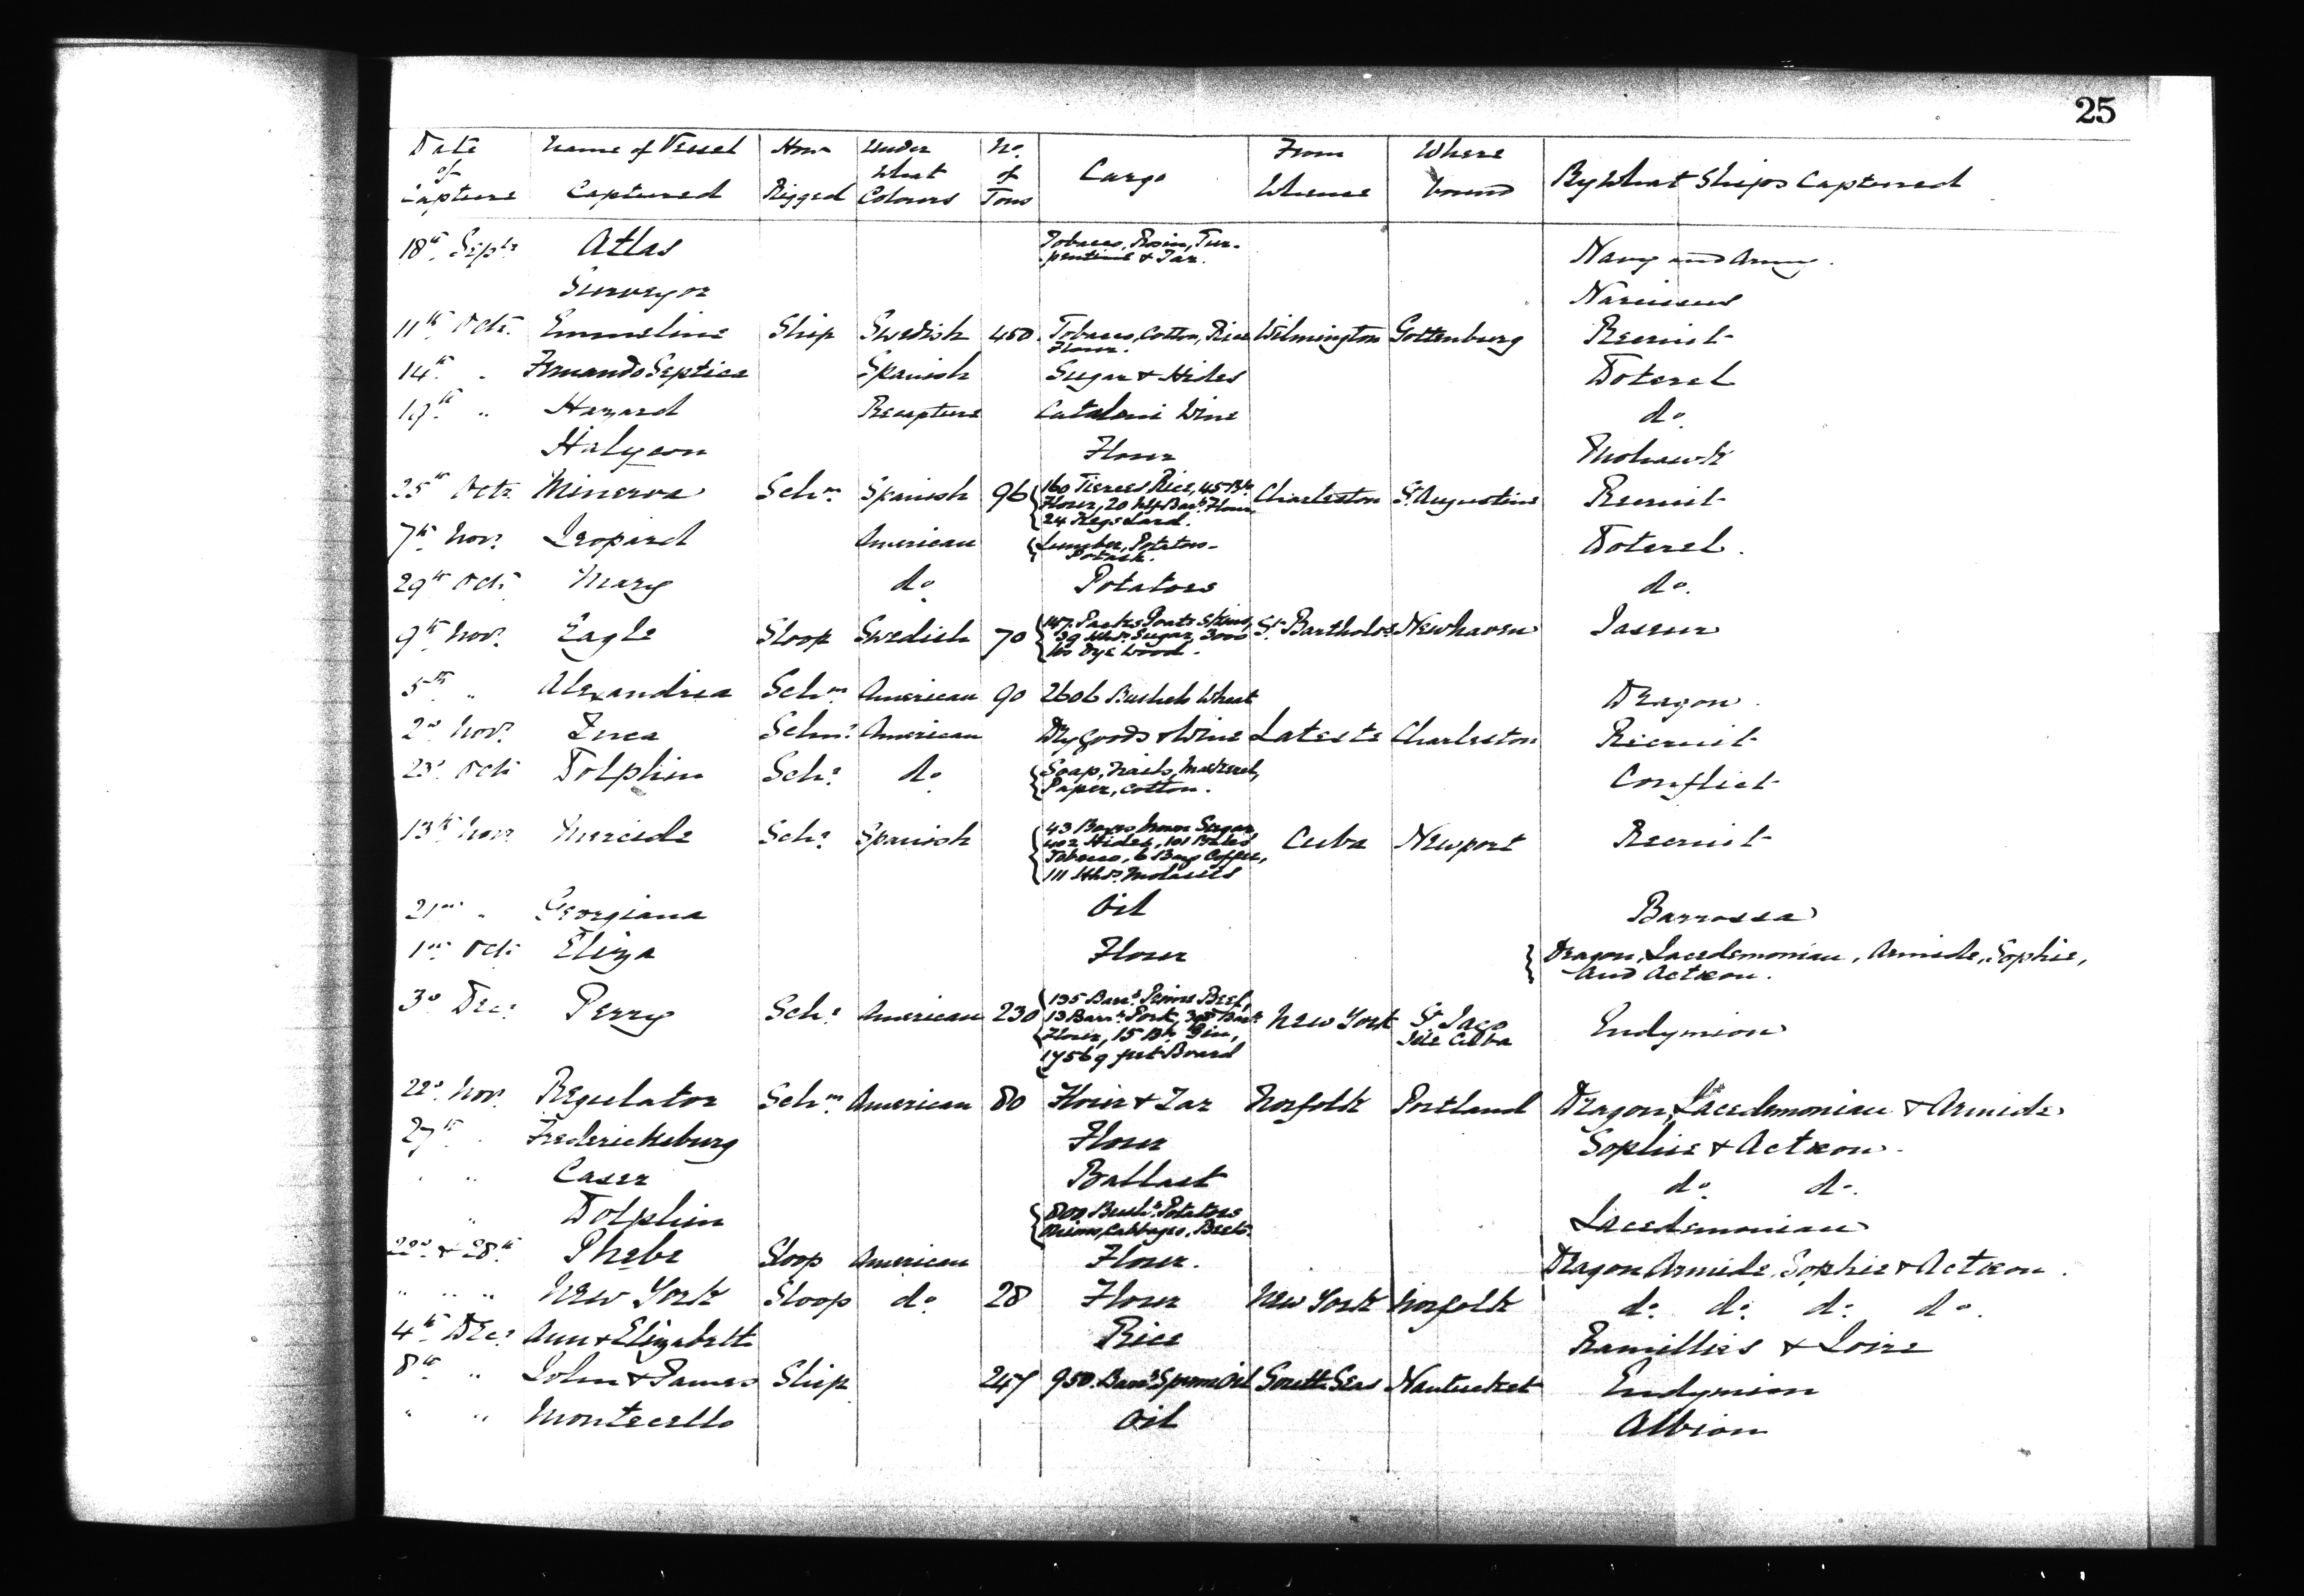 25
Date of Capture | Name of Vessel Captured | How Rigged | Under What Colours | No. of Tons | Cargo | From Whence | Where bound | By What Ships Captured
18th Septr | Atlas | Tobacco, Rosin, Turpentine & Tar. | Navy and Army.
Surveyor | Narcissus
11th Octr. | Emmeline | Ship | Swedish | 450 | Tobacco, Cotton, Rice Flour. | Wilmington | Gottenburg | Recruit
14th " | Fernando Septice | Spanish | Sugar & Hides | Doterel
19th " | Hazard | Recapture | Cataloni Wine | do.
Halycon | Flour | Mohawk
25th Octr. | Minerva | Schr. | Spanish | 96 | 160 Tierces Rice, 45 Bls Flour, 20 hlf Bars. Flour, 24 Kegs Lard. | Charleston | St. Augustine | Recruit
7th Novr. | Leopard | American | Lumber, Potatoes - Potash. | Doterel.
29th Octr. | Mary | do. | Potatoes | do.
9th Novr. | Eagle | Sloop | Swedish | 70 | 147 Packs Goats Skins, 39 Hhds. Sugar, 3000 lbs Dye Wood. | St. Bartholos | Newhaven | Jaseur
5th " | Alexandria | Schr. | American | 90 | 2606 Bushels Wheat | Dragon.
2d Novr. | Inca | Schr. | American | Dry Goods & Wine | Lateste | Charleston | Recruit
23d Octr. | Dolphin | Schr. | do. | Soap, Nails, Mackerel, Paper, Cotton. | Conflict
13th Novr. | Mercede | Schr. | Spanish | 43 Boxes brown Sugar, 402 Hides, 101 Bales Tobacco, 6 Bags Coffee, 111 Hhds. Molasses | Cuba | Newport | Recruit
21st " | Georgiana | Oil | Barrossa
1st Octr. | Eliza | Flour | Dragon, Lacedemonian, Armide, Sophie, and Actæon.
3d Decr. | Perry | Schr. | American | 230 | 135 Bars. Prime Beef, 13 Bars. Pork, 305 Bars. Flour, 15 Bls. Gin, 17569 feet Board | New York | St. Jago Isle Cuba | Endymion
22d Novr. | Regulator | Schr. | American | 80 | Flour & Tar | Norfolk | Portland | Dragon, Lacedemonian & Armide
27th " | Fredericksburg | Flour | Sophie & Actæon.
" " | Caser | Ballast | do. do.
" | Dolphin | 800 Bushs. Potatoes Onions, Cabbages, Beets. | Lacedemonian
22d & 28th | Phebe | Sloop | American | Flour. | Dragon Armide, Sophie & Actæon.
" " " | New York | Sloop | do. | 28 | Flour | New York | Norfolk | do. do. do. do.
4th Decr. | Ann & Elizabeth | Rice | Ramillies & Loire
8th " | John & James | Ship | 247 | 950 Bars. Sperm Oil | South Seas | Nantucket | Endymion
" " | Montecello | Oil | Albion